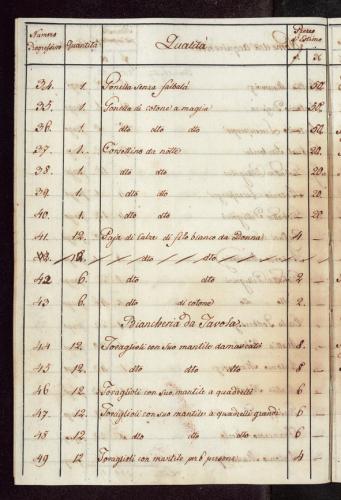 Numero Progressivo Quantità Qualità Prezzo di Estimo
f. x
34. 1. Gonella senza falbalà 50.
35. 1. Gonella di cotone a magia 50.
36. 1. dto dto dto 50.
37. 1. Corsettino da notte 20.
38. 1. dto dto 20.
39. 1. dto dto 20.
40. 1. dto dto 20.
41. 12. Paja di calze di filo bianco da Donna 4 —
dto dto
42 6. dto dto 2 —
43 6. dto di cotone 2 —
Biancheria da Tavola
44 12. Tovaglioli con suo mantile damascato 8 —
45 12. dto dto dto 8 —
46 12 Tovaglioli con suo mantile a quadretti 6 —
47. 12. Tovaglioli con suo mantile a quadretti grandi 6 —
48 12. dto dto dto 6 —
49 12 Tovaglioli con mantile per 6 persone 4 —